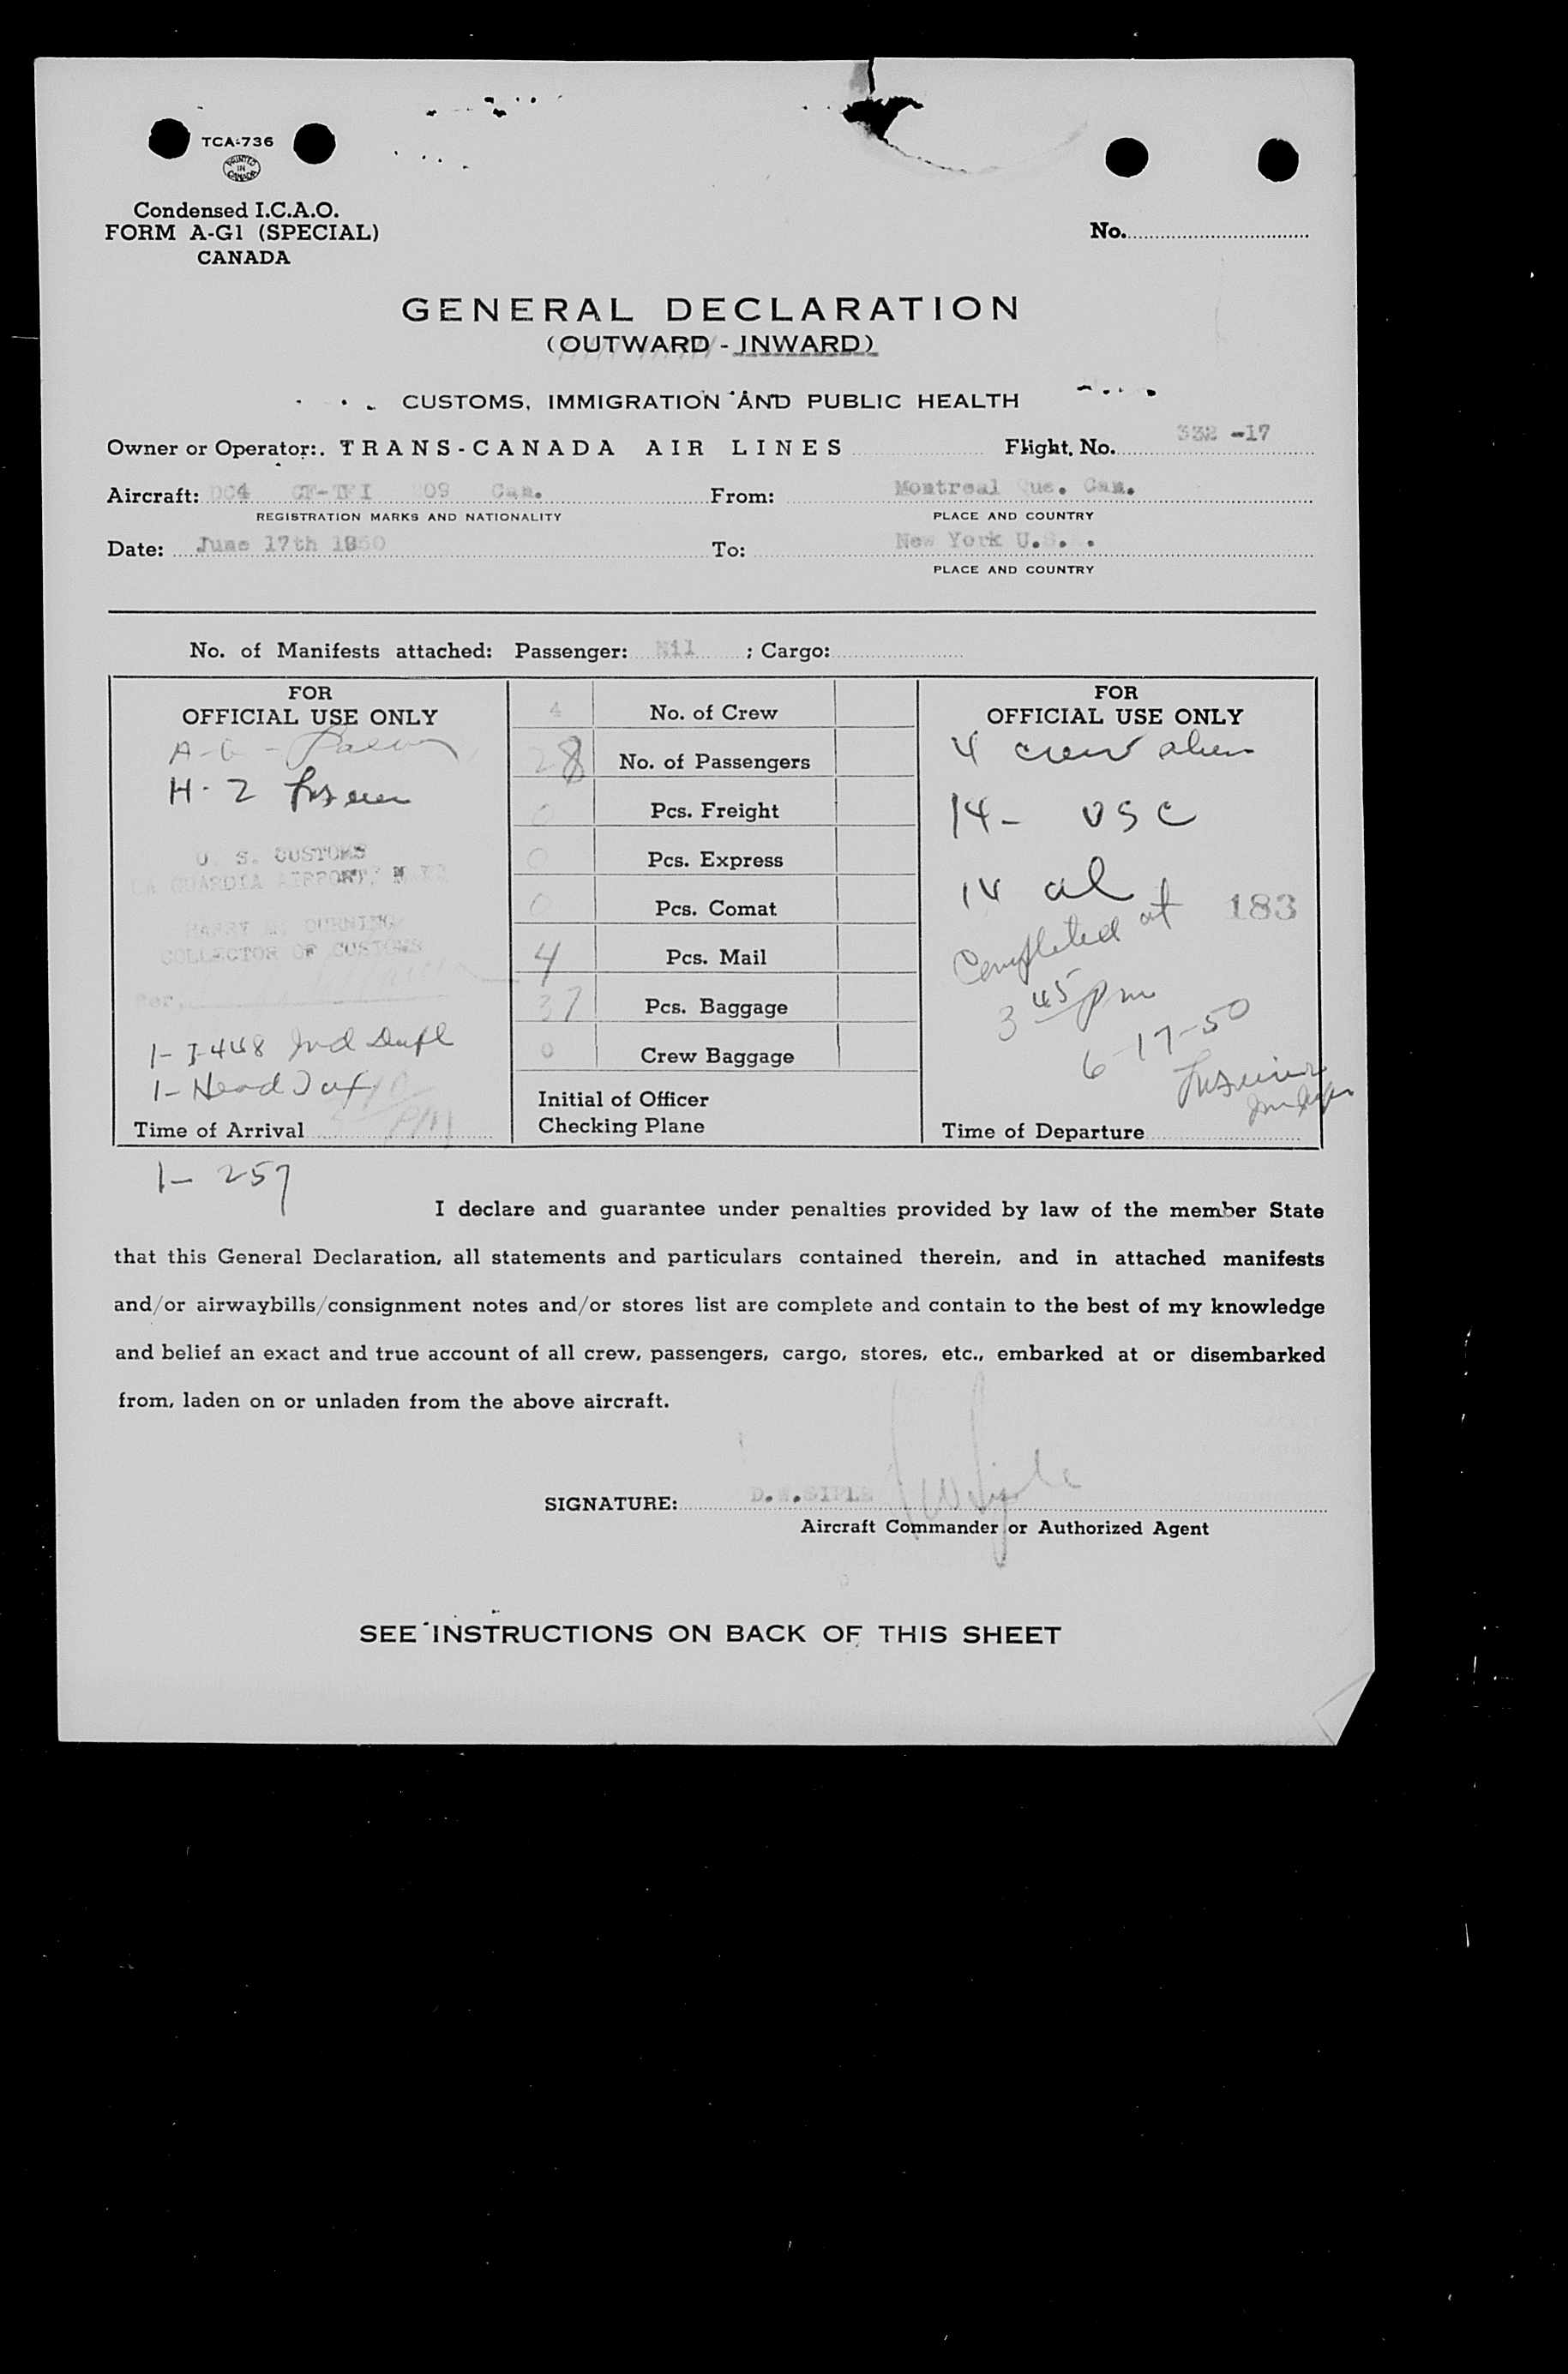 TCA-736
PRINTED
IN
CANADA
Condensed I.C.A.O.
FORM A-G1 (SPECIAL)
CANADA
No.
GENERAL DECLARATION
(OUTWARD - INWARD)
CUSTOMS, IMMIGRATION AND PUBLIC HEALTH
Owner or Operator: TRANS-CANADA AIR LINES Flight No. 332 -17
Aircraft: DC4 CF-TFI 209 Can. From: Montreal Que. Can.
REGISTRATION MARKS AND NATIONALITY PLACE AND COUNTRY
Date: June 17th 1950 To: New York U.S. .
PLACE AND COUNTRY
No. of Manifests attached: Passenger: Nil ; Cargo:
FOR
OFFICIAL USE ONLY
A-G -
H-2
U. S. CUSTOMS
LA GUARDIA AIRPORT, N.Y.
HARRY M. DURNING
COLLECTOR OF CUSTOMS
Per.
1- I-448 Ind Dupl
1- Head Tax
Time of Arrival PM
1- 257
4 No. of Crew
28 No. of Passengers
0 Pcs. Freight
0 Pcs. Express
0 Pcs. Comat
4 Pcs. Mail
37 Pcs. Baggage
0 Crew Baggage
Initial of Officer
Checking Plane
FOR
OFFICIAL USE ONLY
4 crew alien
14- USC
14 al
183
Completed at
3 45 pm
6-17-50
Time of Departure
I declare and guarantee under penalties provided by law of the member State
that this General Declaration, all statements and particulars contained therein, and in attached manifests
and/or airwaybills/consignment notes and/or stores list are complete and contain to the best of my knowledge
and belief an exact and true account of all crew, passengers, cargo, stores, etc., embarked at or disembarked
from, laden on or unladen from the above aircraft.
SIGNATURE: D.W.SIPLE DW Siple
Aircraft Commander or Authorized Agent
SEE INSTRUCTIONS ON BACK OF THIS SHEET